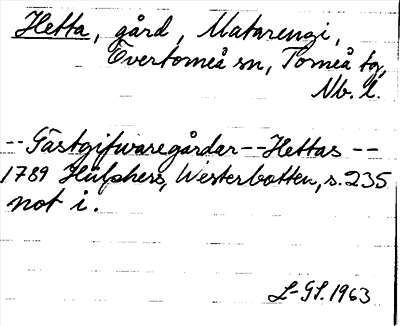 Hetta, gård, Matarengi,
Övertorneå sn, Torneå tg,
Nb. l.
-- Gästgifvaregårdar -- Hettas --
1789 Hülphers, Westerbotten, s. 235
not i.
L-GL. 1963